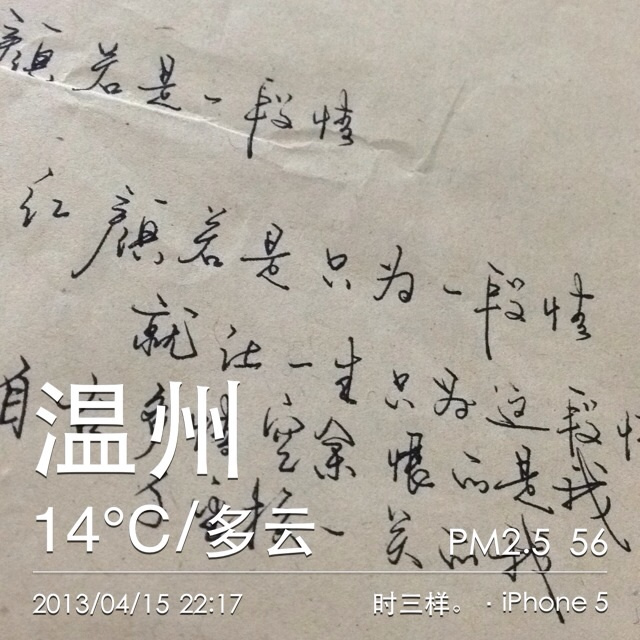 顔若是一段情
红颜若是只为一段情
就让一生只为这段情
自古多情空余恨的是我
关的我
温州
14°C/多云
PM2.5 56
2013/04/15 22:17
时三样。 · iPhone 5